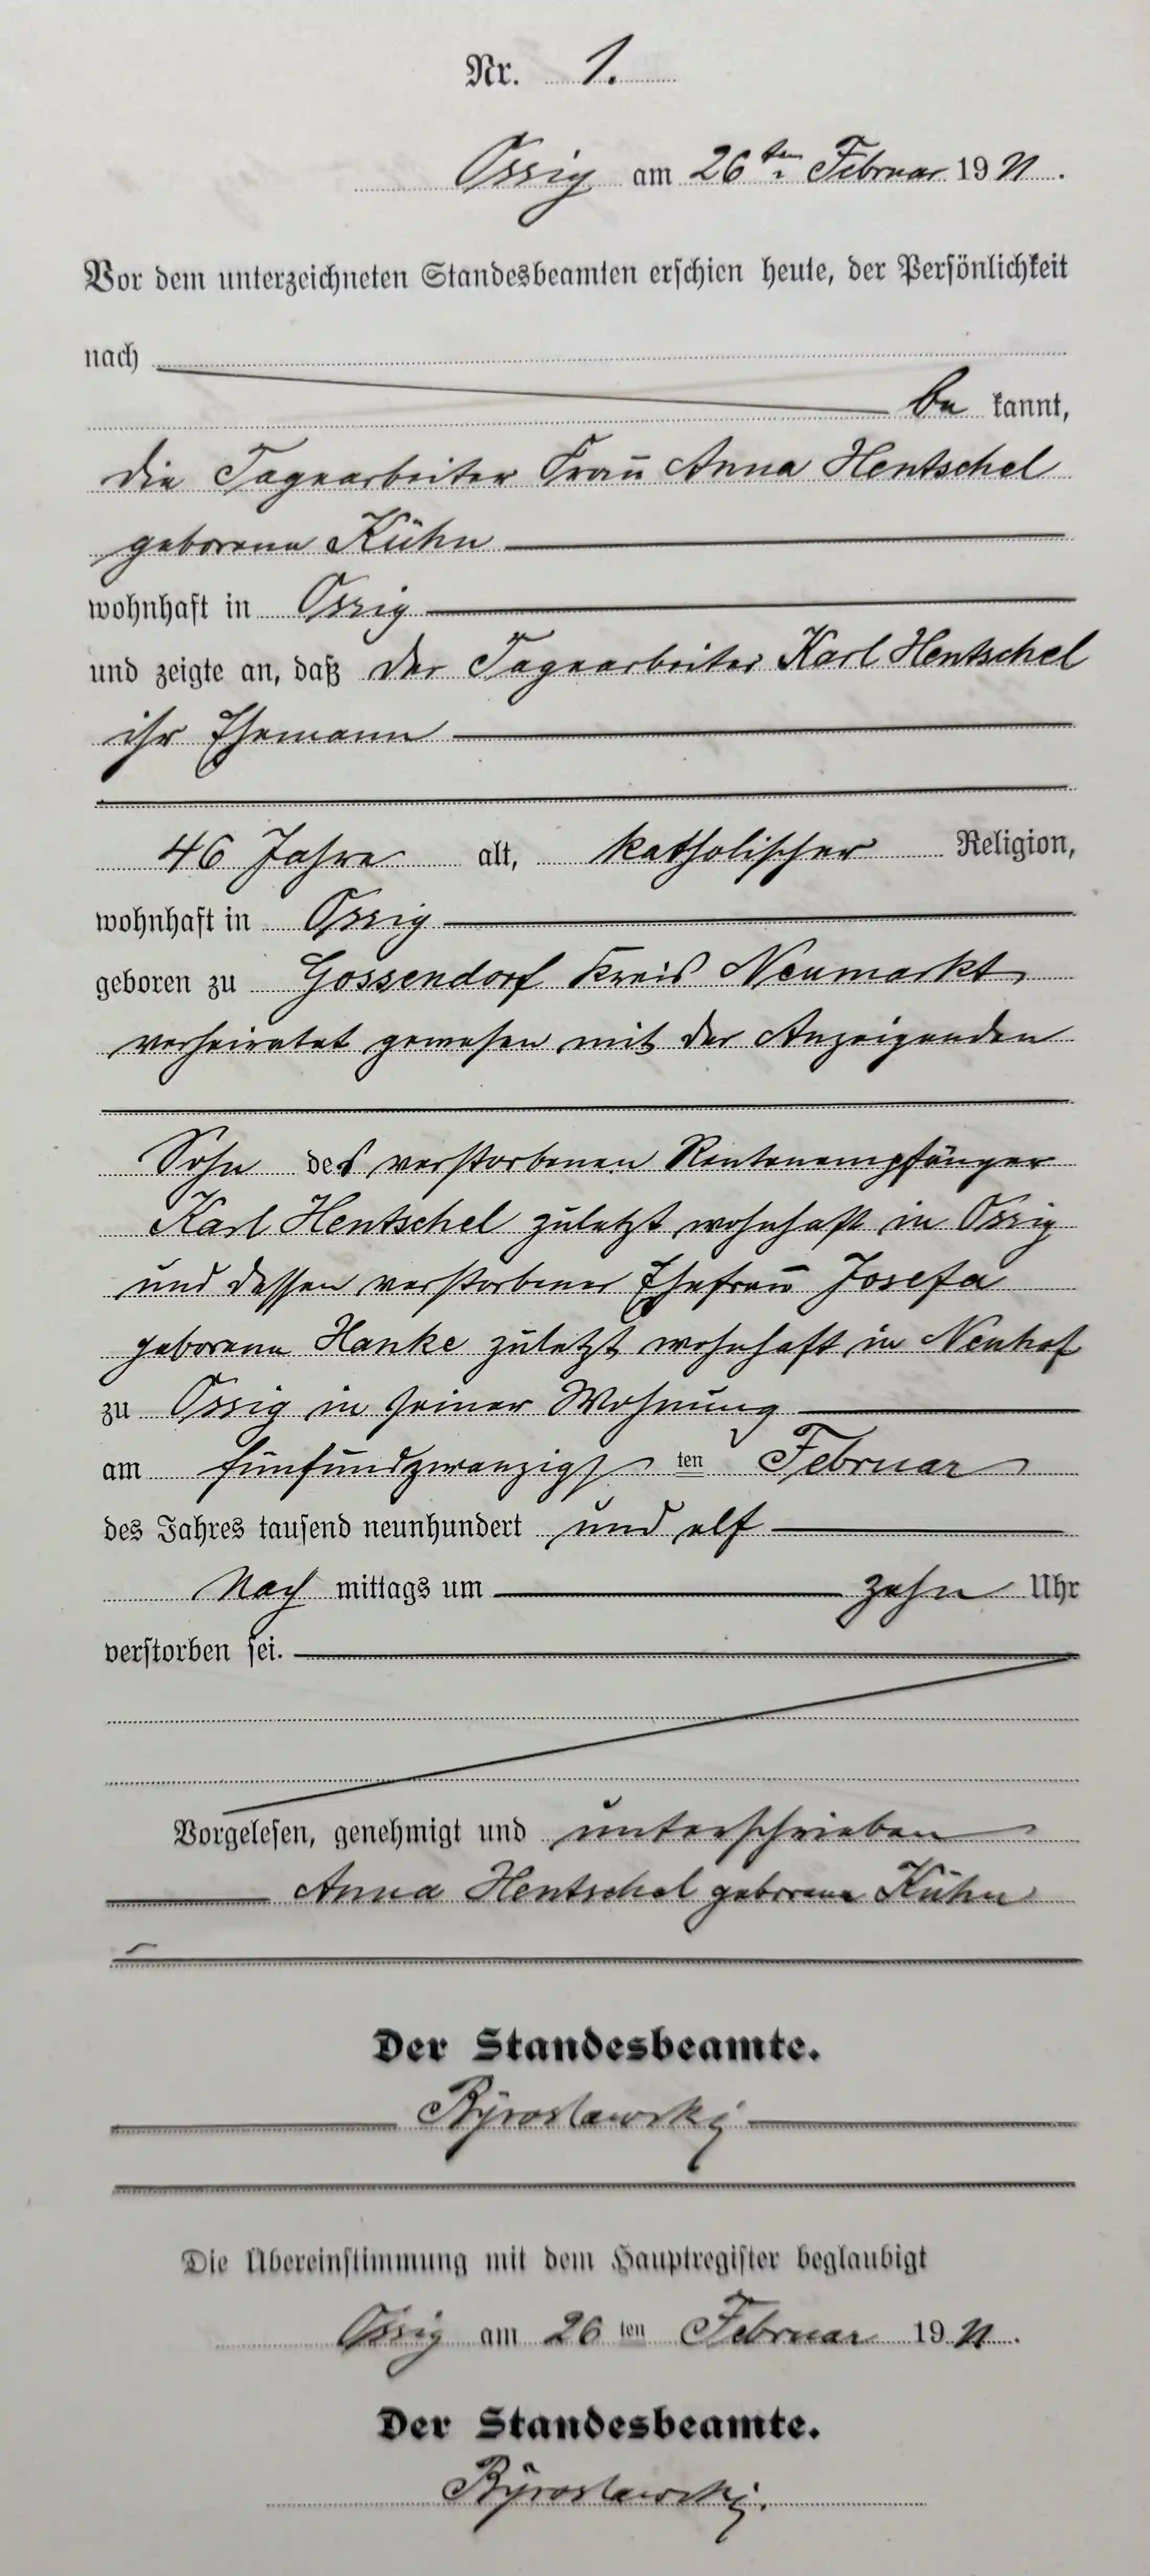 Nr. 1.
Ossig am 26ten Februar 1911.
Vor dem unterzeichneten Standesbeamten erschien heute, der Persönlichkeit
nach
be kannt,
die Tagearbeiter Frau Anna Hentschel
geborene Kühn
wohnhaft in Ossig
und zeigte an, daß der Tagearbeiter Karl Hentschel
ihr Ehemann
46 Jahre alt, katholischer Religion,
wohnhaft in Ossig
geboren zu Gossendorf Kreis Neumarkt,
verheiratet gewesen mit der Anzeigenden
Sohn des verstorbenen Rentenempfänger
Karl Hentschel zuletzt wohnhaft in Ossig
und dessen verstorbener Ehefrau Josefa
geborene Hanke zuletzt wohnhaft in Neuhof
zu Ossig in seiner Wohnung
am fünfundzwanzigs ten Februar
des Jahres tausend neunhundert und elf
Nach mittags um zehn Uhr
verstorben sei.
Vorgelesen, genehmigt und unterschrieben
Anna Hentschel geborene Kühn
Der Standesbeamte.
Die Übereinstimmung mit dem Hauptregister beglaubigt
Ossig am 26 ten Februar 1911.
Der Standesbeamte.